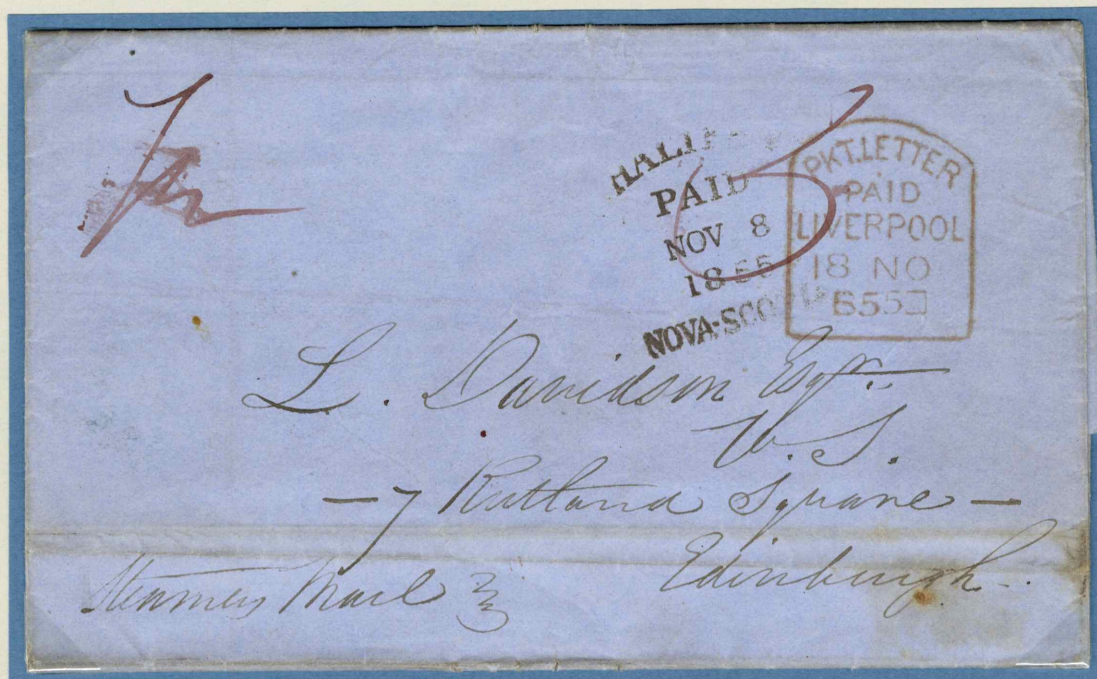 HALIFAX
PAID
NOV 8
1855
NOVA-SCOTIA
PKT.LETTER
PAID
LIVERPOOL
18 NO
5
L. Davidson Esqr.
W.S.
— 7 Rutland Square —
Edinburgh.
Steamers Mail